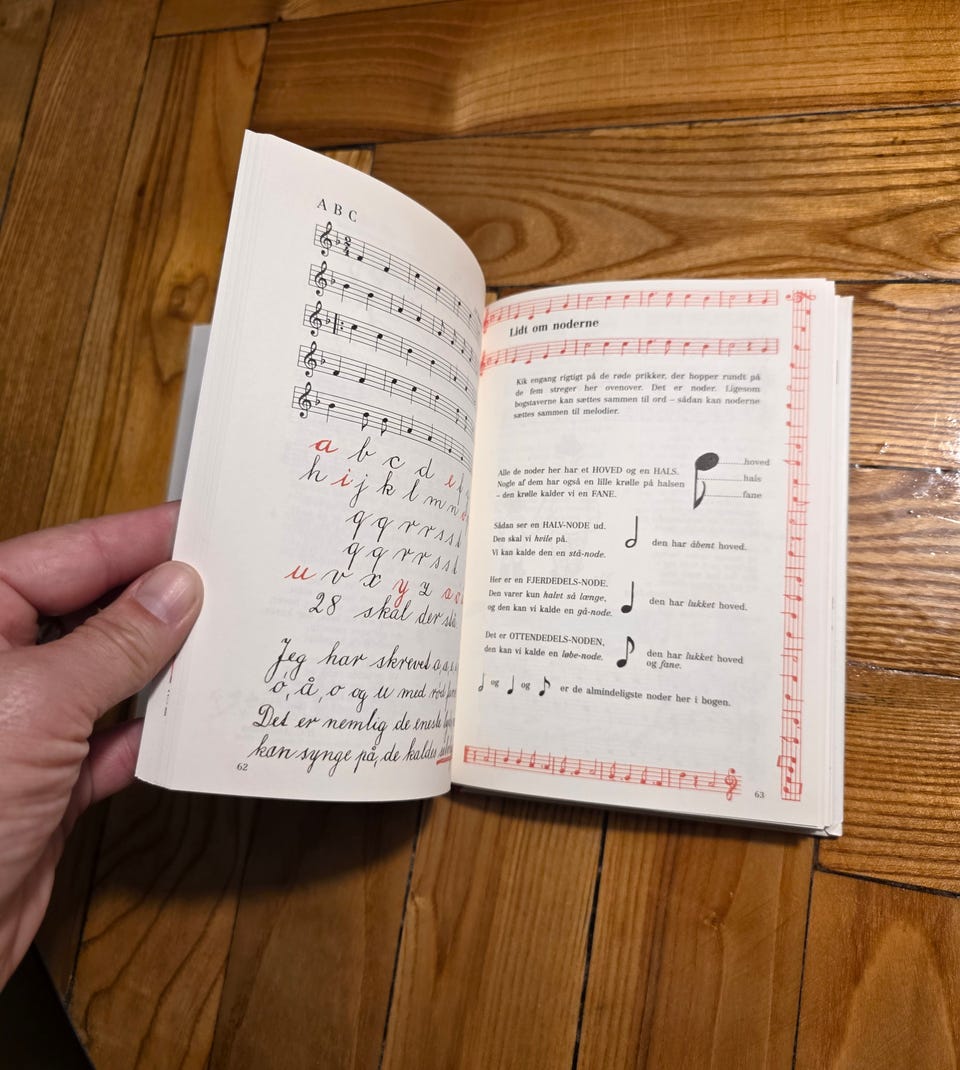 A B C
a b c d e f
h i j k l m n
q q r r s s t
q q r r s s t
u v x y z
28 skal der stå
Jeg har skrevet
ó, å, o og u med
Det er nemlig de eneste
kan synge på, de kaldes
62
Lidt om noderne
Kik engang rigtigt på de røde prikker, der hopper rundt på
de fem streger her ovenover. Det er noder. Ligesom
bogstaverne kan sættes sammen til ord – sådan kan noderne
sættes sammen til melodier.
Alle de noder her har et HOVED og en HALS.
Nogle af dem har også en lille krølle på halsen
– den krølle kalder vi en FANE.
hoved
hals
fane
Sådan ser en HALV-NODE ud.
Den skal vi hvile på.
Vi kan kalde den en stå-node.
den har åbent hoved.
Her er en FJERDEDELS-NODE.
Den varer kun halvt så længe,
og den kan vi kalde en gå-node.
den har lukket hoved.
Det er OTTENDEDELS-NODEN,
den kan vi kalde en løbe-node.
den har lukket hoved
og fane.
og og er de almindeligste noder her i bogen.
63